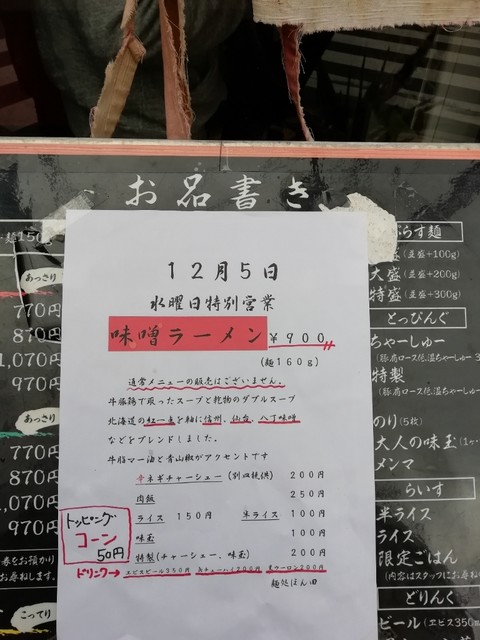 お名書き
12月5日
水曜日特別営業
味噌ラーメン ￥900
(麺160g)
通常メニューの販売はございません。
牛豚鶏で取ったスープと乾物のダブルスープ
北海道の紅一点を軸に信州、仙台、八丁味噌
などをブレンドしました。
牛脂マー油と青山椒がアクセントです
ネギチャーシュー(別皿提供) 200円
肉飯 250円
ライス 150円 半ライス 100円
味玉 100円
特製(チャーシュー、味玉) 200円
エビスビール350円 缶チューハイ200円 黒ウーロン200円
麺処ほん田
トッピング
コーン
50円
ドリンク→
あっさり
770円
870円
1,070円
970円
あっさり
770円
870円
1,070円
970円
券をお預かり
お尋ねします。
こってり
らす麺
(並盛+100g)
大盛(並盛+200g)
特盛(並盛+300g)
とっぴんぐ
ちゃーしゅー
特製
のり(5枚)
大人の味玉
メンマ
らいす
半ライス
ライス
限定ごはん
(内容はスタッフにお尋ね
どりんく
ビール(エビス350m